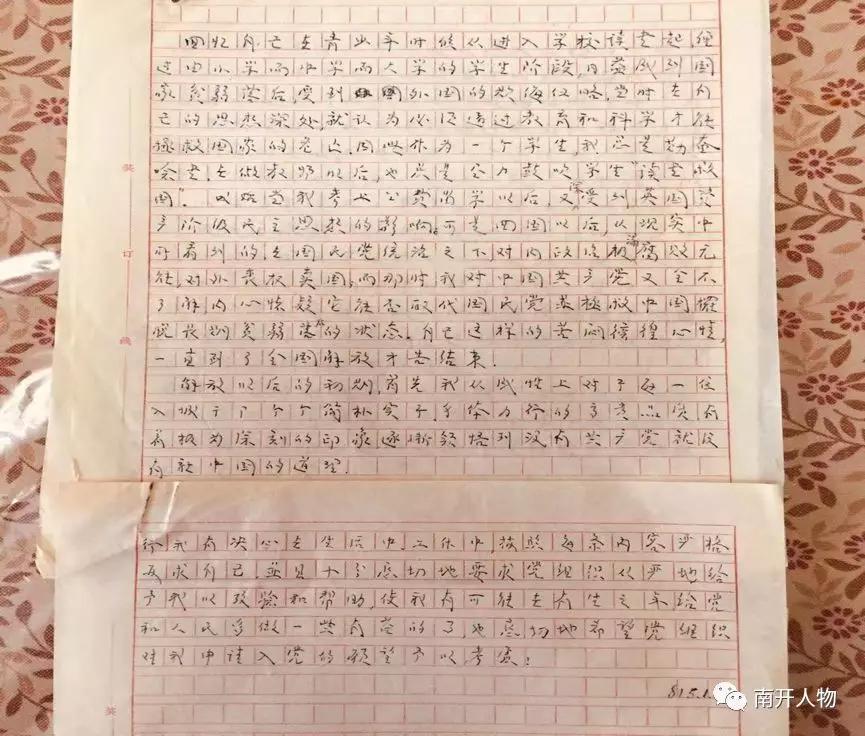 回忆自己在青少年时候从进入学校读书起经
过由小学而中学而大学的学生阶段,日益感到国
家贫弱落后,受到外国的欺侮侵略,当时在自
己的思想深处,就认为必须通过教育和科学才能
拯救国家的危亡,因此作为一个学生,我总是勤奋
念书,在做教师以后,也总是尽力鼓吹学生“读书救
国”。以后当我考上公费留学以后,又深受到英国资
产阶级民主思想的影响。可是回国以后,从现实中
所看到的在国民党统治之下对内政治极端腐败无
能,对外丧权卖国,而那时我对中国共产党又全不
了解,内心怀疑它能否取代国民党来拯救中国摆
脱长期贫弱落后的状态。自己这样的苦闷徬徨心情,
一直到了全国解放才告结束。
解放以后的初期,首先我从感性上对于每一位
入城干部个个简朴实干身体力行的高贵品质有
着极为深刻的印象逐渐领悟到没有共产党就没
有新中国的道理。
我有决心在生活中、工作中,按照每条内容严格
反求自己,并且十分恳切地要求党组织从严地给
予我以考验和帮助,使我有可能在有生之年给党
和人民多做一些有益的事,也恳切地希望党组织
对我申请入党的愿望予以考虑!
81.5.1
装
订
线
装
南开人物